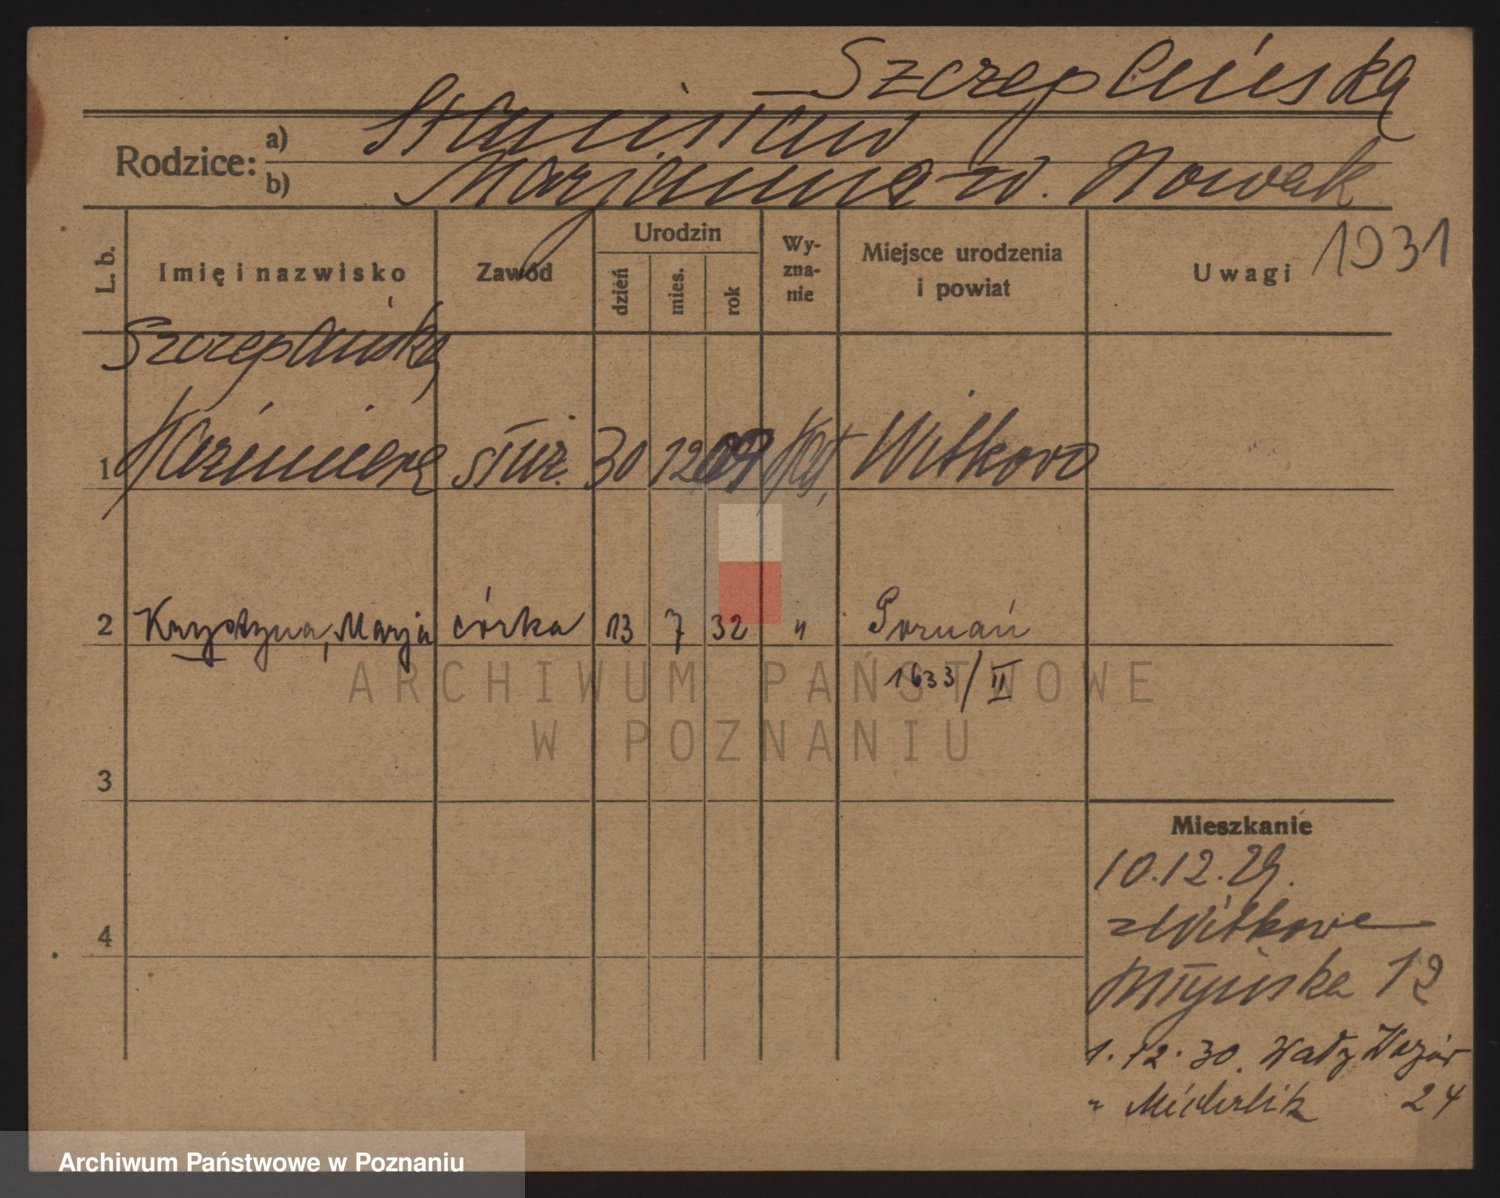 Szczeplińska
Rodzice:
a) Stanisław
b) Marjanna z d. Nowak
L. b.
Imię i nazwisko
Zawód
Urodzin
dzień
mies.
rok
Wy-
zna-
nie
Miejsce urodzenia
i powiat
Uwagi 1931
Szczeplińska
1 Kazimiera służ. 30 12 09 kat. Witkowo
2 Krystyna, Marja córka 13 7 32 " Poznań
1633/II
ARCHIWUM PAŃSTWOWE
W POZNANIU
3
Mieszkanie
10.12.29.
z Witkowa
4
Młyńska 12
1.12.30. Wały
24
Archiwum Państwowe w Poznaniu